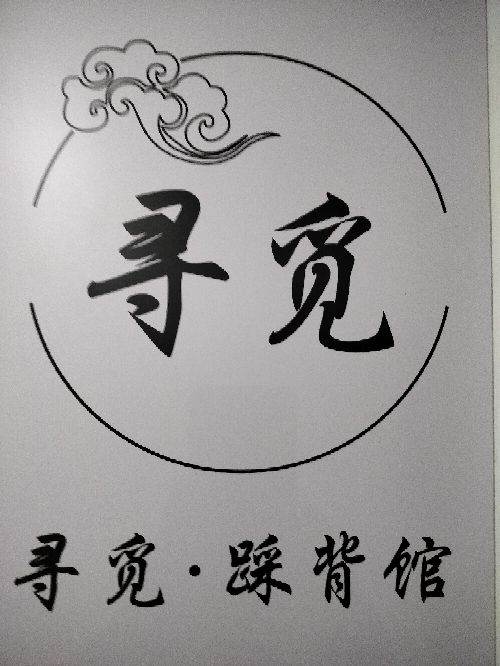 寻觅
寻觅·踩背馆